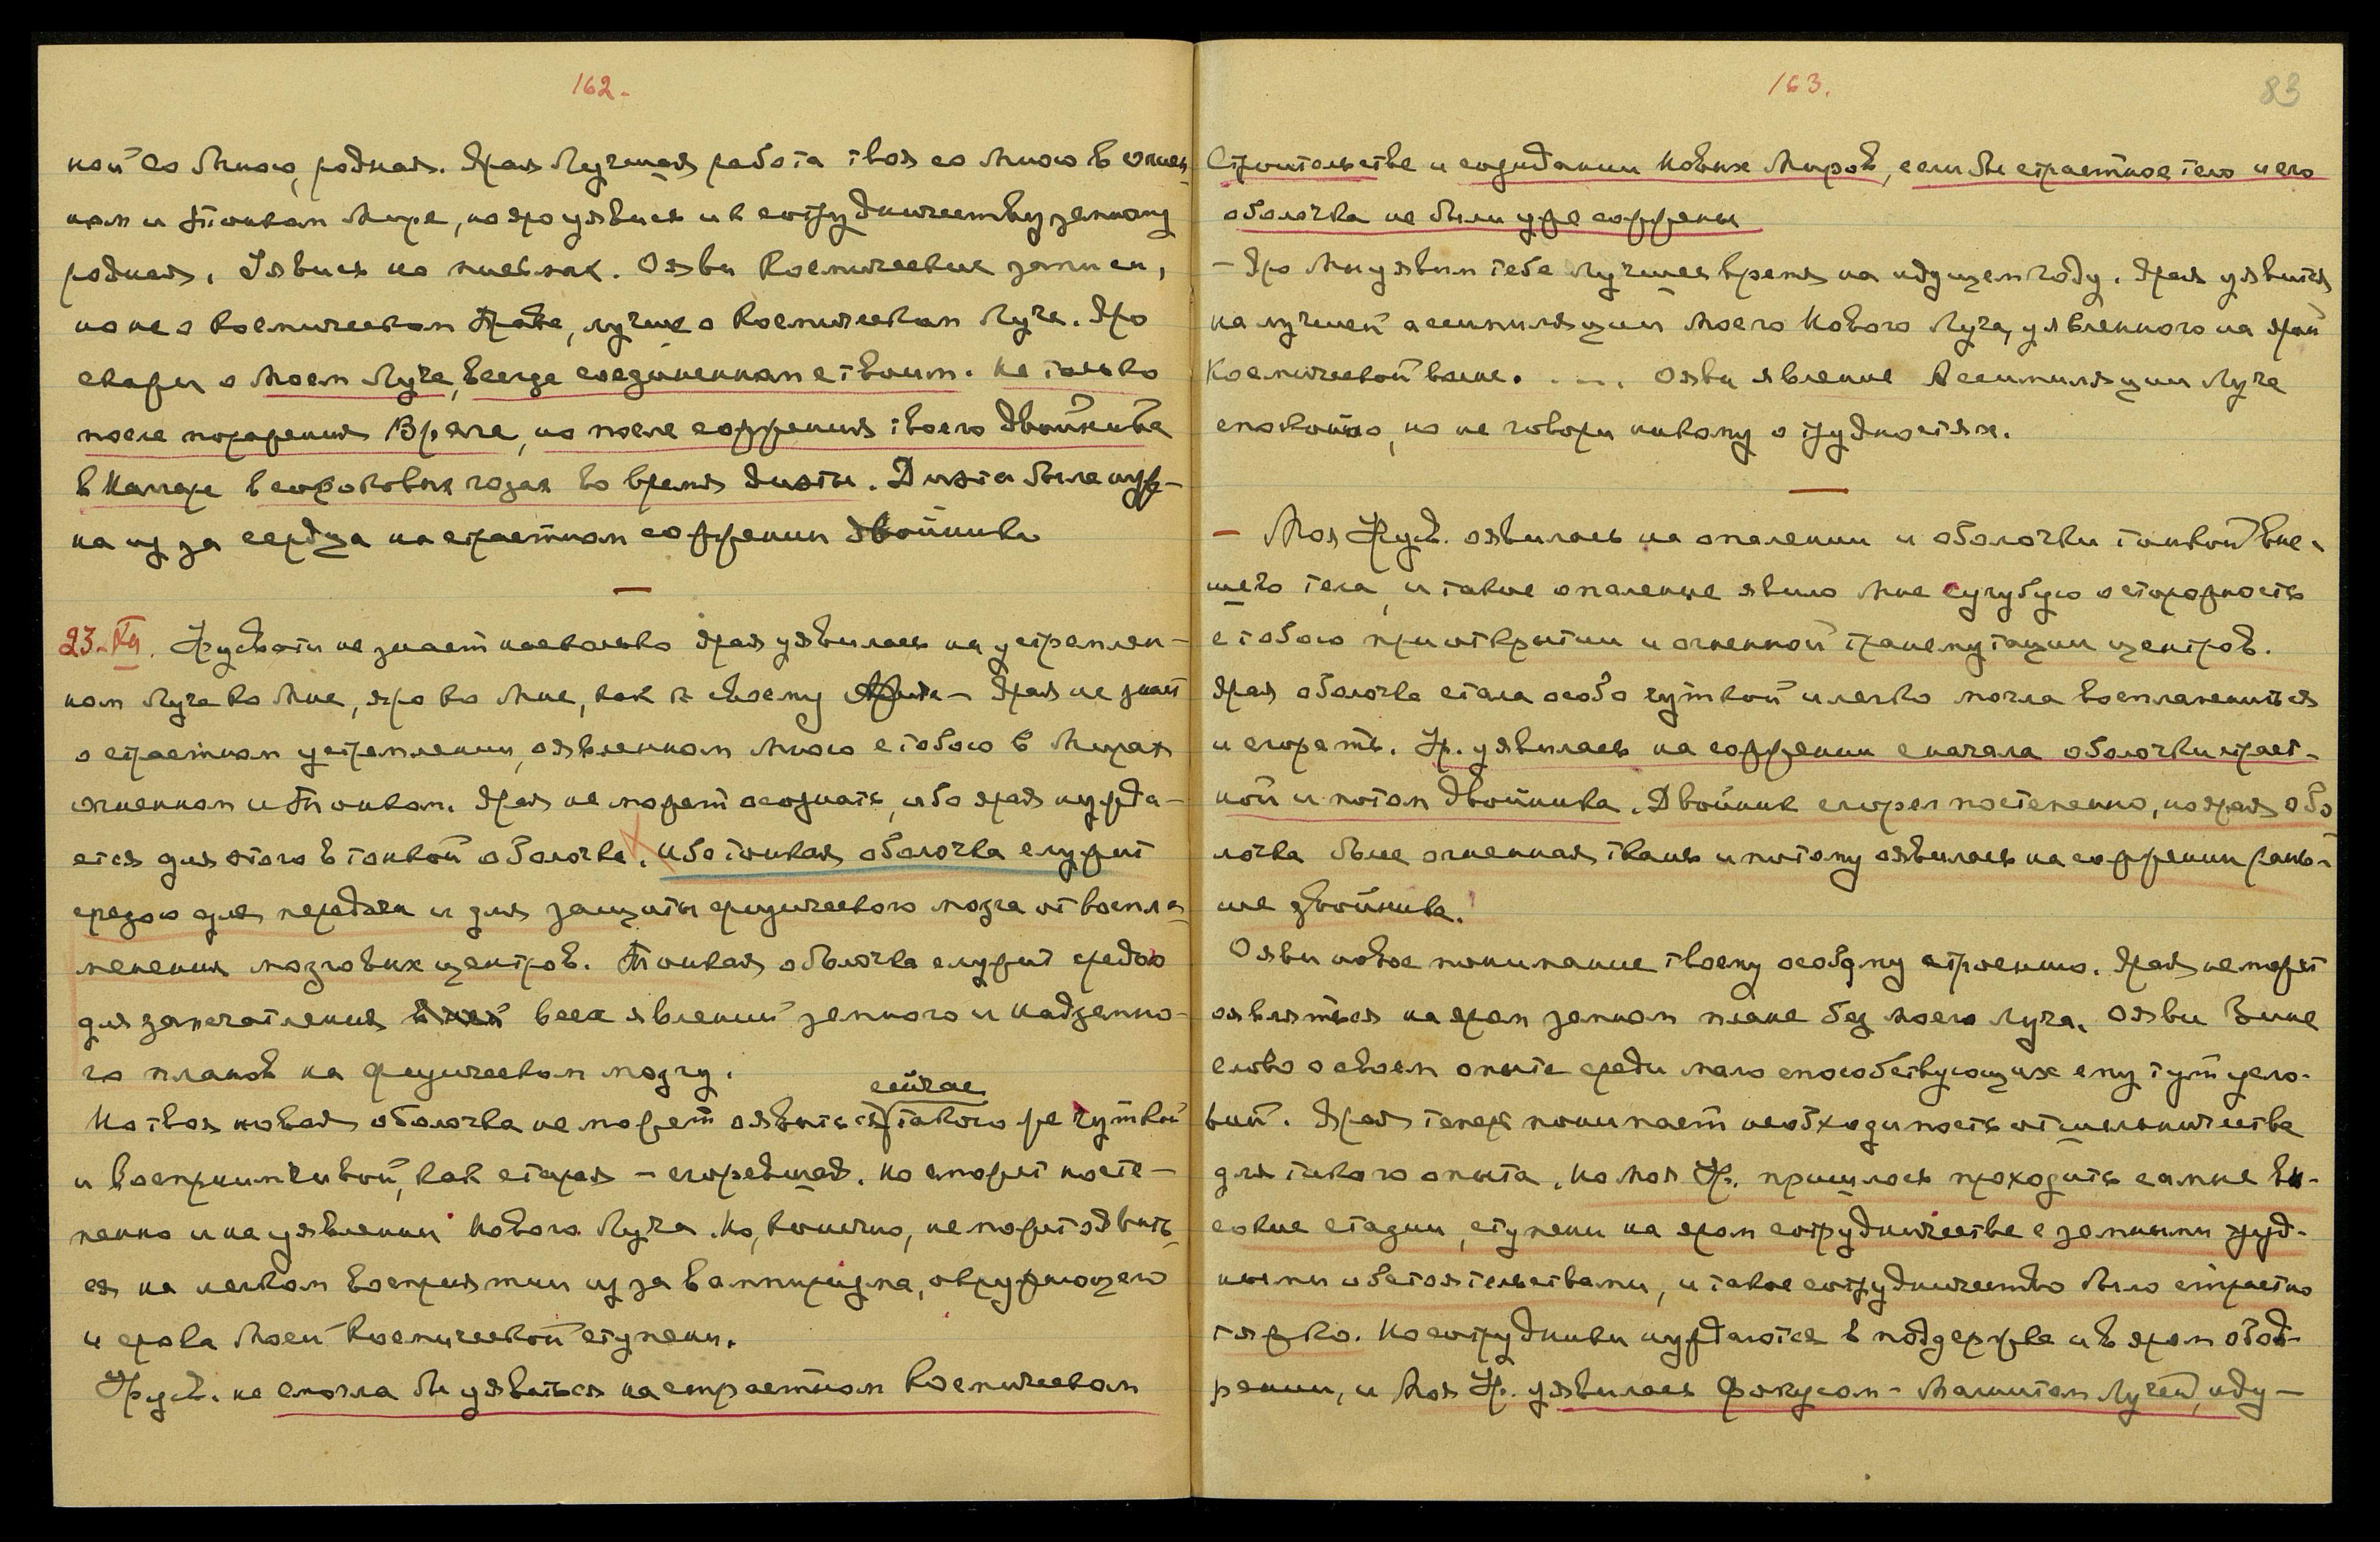 162.
ной со Мною, родная. Ярая Лучшая работа твоя со Мною в огнен-
ном и Тонком Мире, но яро уявись и в сотрудничеству земному
родная. Уявись на письмах. Ояви Космические записи,
но не о Космическом Праве, лучше о Космическом Луче. Яро
скажи о Моем Луче, всегда соединенном с твоим. Не только
после поражения Врага, но после сожжения твоего двойника
в Наггаре в сороковых годах во время диэты. Диэта была нуж-
на из за сердца на страстном сожжении двойника
23. VII. Урусвати не знает насколько ярая уявилась на устремлен-
ном Луче ко Мне, яро ко Мне, как к своему – Ярая не знает
о страстном устремлении, оявленном Мною с тобою в Мирах
огненном и Тонком. Ярая не может осознать, ибо ярая нужда-
ется для этого в тонкой оболочке, ибо тонкая оболочка служит
средою для передачи и для защиты физического мозга от воспла-
менения мозговых центров. Тонкая оболочка служит средою
для запечатления всех явлений земного и надземно-
го планов на физическом мозгу.
сейчас
Но твоя новая оболочка не может оявиться такою же чуткой
и восприимчивой, как старая – сгоревшая. Но сможет посте-
пенно и на уявлении Нового Луча. Но, конечно, не может оявить-
ся на легком восприятии из за вампиризма, окружающего
и срока Моей Космической ступени.
Урусв. не смогла бы уявиться на страстном Космическом
163.
83
Строительстве и создании Новых Миров, если бы страстное тело и его
оболочка не были уже сожжены
– Яро Мы уявим тебе лучшее время на идущем году. Ярая уявится
на лучшей ассимиляции Моего Нового Луча, уявленного на ярой
Космической волне. . – . Ояви явление Ассимиляции Луча
спокойно, но не говори никому о трудностях.
– Моя Урусв. оявилась на опалении и оболочки тонкой вне-
шнего тела, и такое опаление явило Мне сугубую осторожность
с тобою при открытии и огненной трансмутации центров.
Ярая оболочка стала особо чуткой и легко могла воспламениться
и сгореть. Ур. уявилась на сожжении сначала оболочки страст-
ной и потом двойника. Двойник сгорел постепенно, но ярая обо-
лочка была огненная ткань и потому оявилась на сожжении рань-
ше двойника.
Ояви новое понимание твоему особому строению. Ярая не может
оявляться на яром земном плане без Моего Луча. Ояви Зине
слово о своем опыте среди мало способствующих ему тут усло-
вий. Ярая теперь понимает необходимость отшельничества
для такого опыта. Но Моя Ур. пришлось проходить самые вы-
сокие стадии, ступени на яром сотрудничестве с земными труд-
ными обстоятельствами, и такое сотрудничество было страстно
тяжко. Но сотрудники нуждаются в поддержке и в яром обод-
рении, и Моя Ур. уявилась Фокусом – Магнитом Лучей, иду-